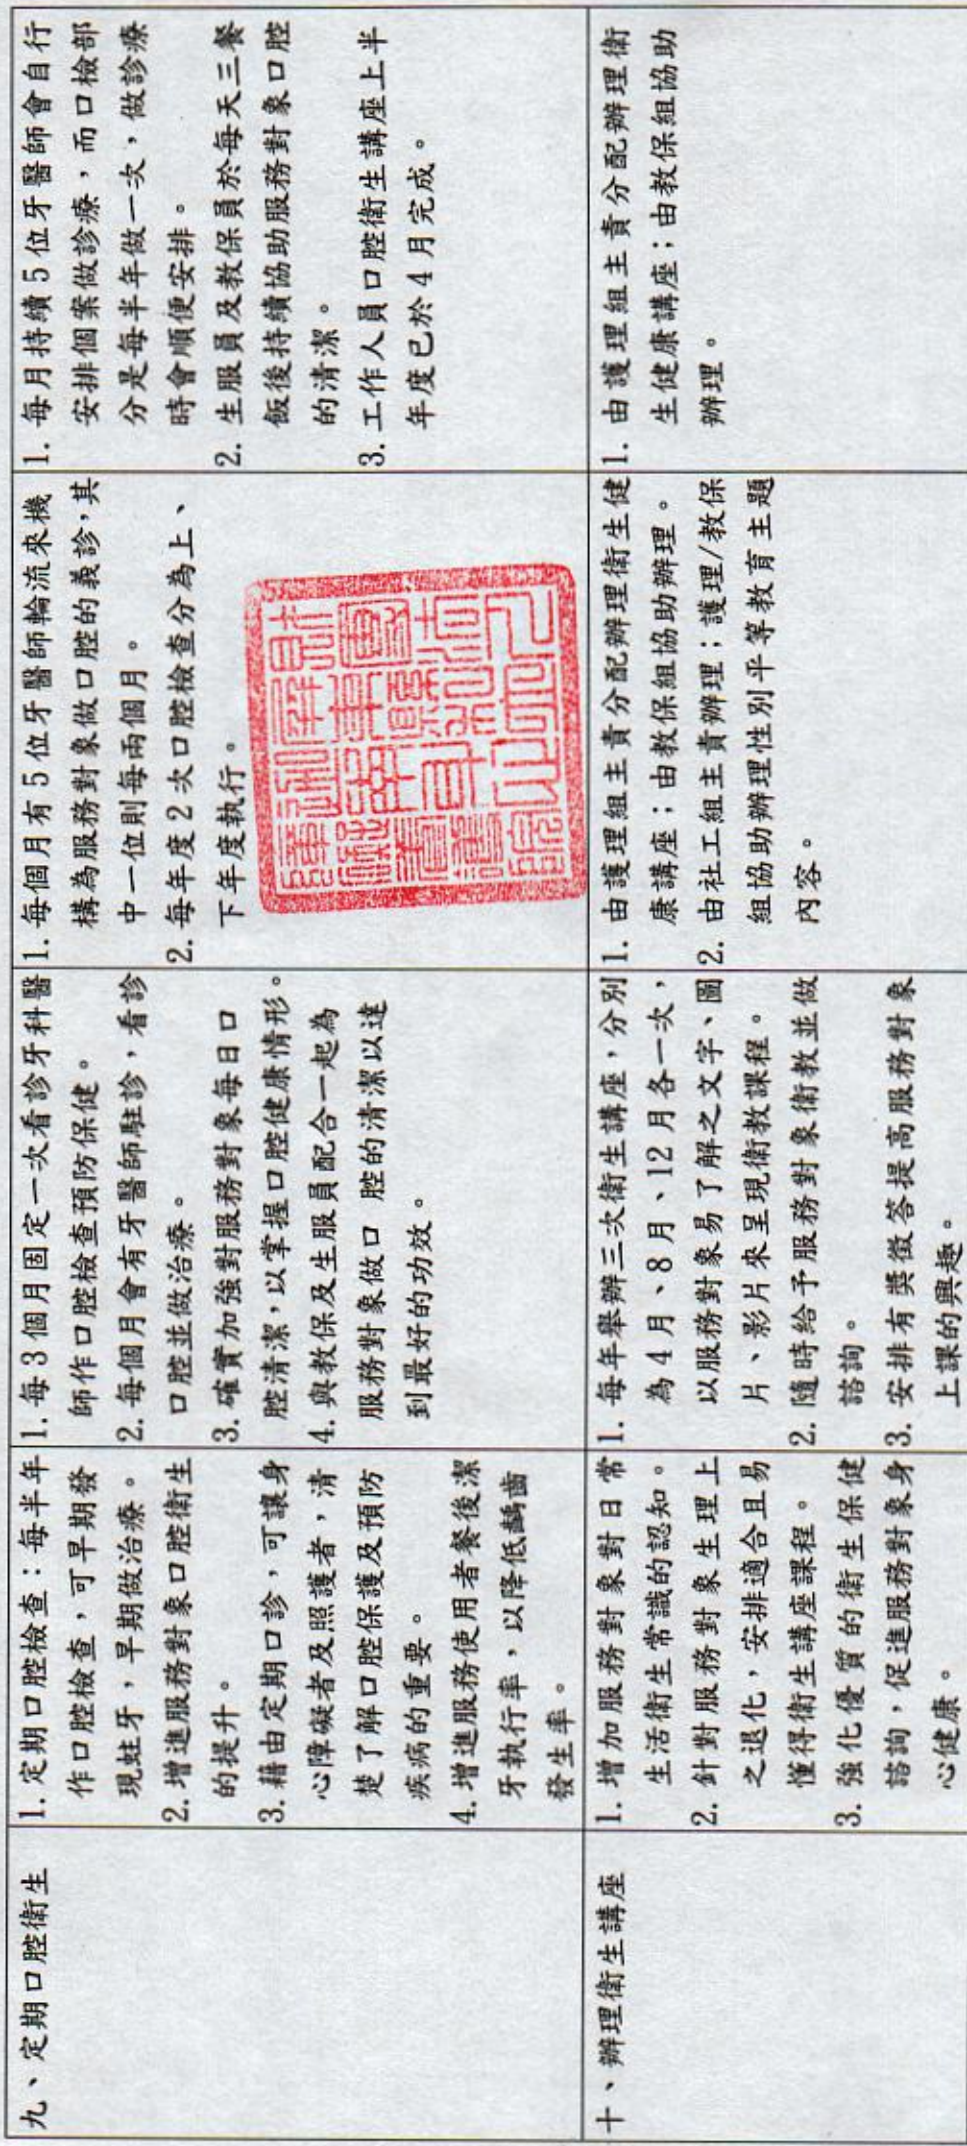 九、定期口腔衛生
1. 定期口腔檢查：每半年
作口腔檢查，可早期發
現蛀牙，早期做治療。
2. 增進服務對象口腔衛生
的提升。
3. 藉由定期口診，可讓身
心障礙者及照護者，清
楚了解口腔保護及預防
疾病的重要。
4. 增進服務使用者餐後潔
牙執行率，以降低齲齒
發生率。
1. 每3個月固定一次看診牙科醫
師作口腔檢查預防保健。
2. 每個月會有牙醫師駐診，看診
口腔並做治療。
3. 確實加強對服務對象每日口
腔清潔，以掌握口腔健康情形。
4. 與教保及生服員配合一起為
服務對象做口 腔的清潔以達
到最好的功效。
1. 每個月有5位牙醫師輪流來機
構為服務對象做口腔的義診，其
中一位則每兩個月。
2. 每年度2次口腔檢查分為上、
下年度執行。
1. 每月持續5位牙醫師會自行
安排個案做診療，而口檢部
分是每半年做一次，做診療
時會順便安排。
2. 生服員及教保員於每天三餐
飯後持續協助服務對象口腔
的清潔。
3. 工作人員口腔衛生講座上半
年度已於4月完成。
十、辦理衛生講座
1. 增加服務對象對日常
生活衛生常識的認知。
2. 針對服務對象生理上
之退化，安排適合且易
懂得衛生講座課程。
3. 強化優質的衛生保健
諮詢，促進服務對象身
心健康。
1. 每年舉辦三次衛生講座，分別
為4月、8月、12月各一次，
以服務對象易了解之文字、圖
片、影片來呈現衛教課程。
2. 隨時給予服務對象衛教並做
諮詢。
3. 安排有獎徵答提高服務對象
上課的興趣。
1. 由護理組主責分配辦理衛生健
康講座；由教保組協助辦理。
2. 由社工組主責辦理；護理/教保
組協助辦理性別平等教育主題
內容。
1. 由護理組主責分配辦理衛
生健康講座；由教保組協助
辦理。